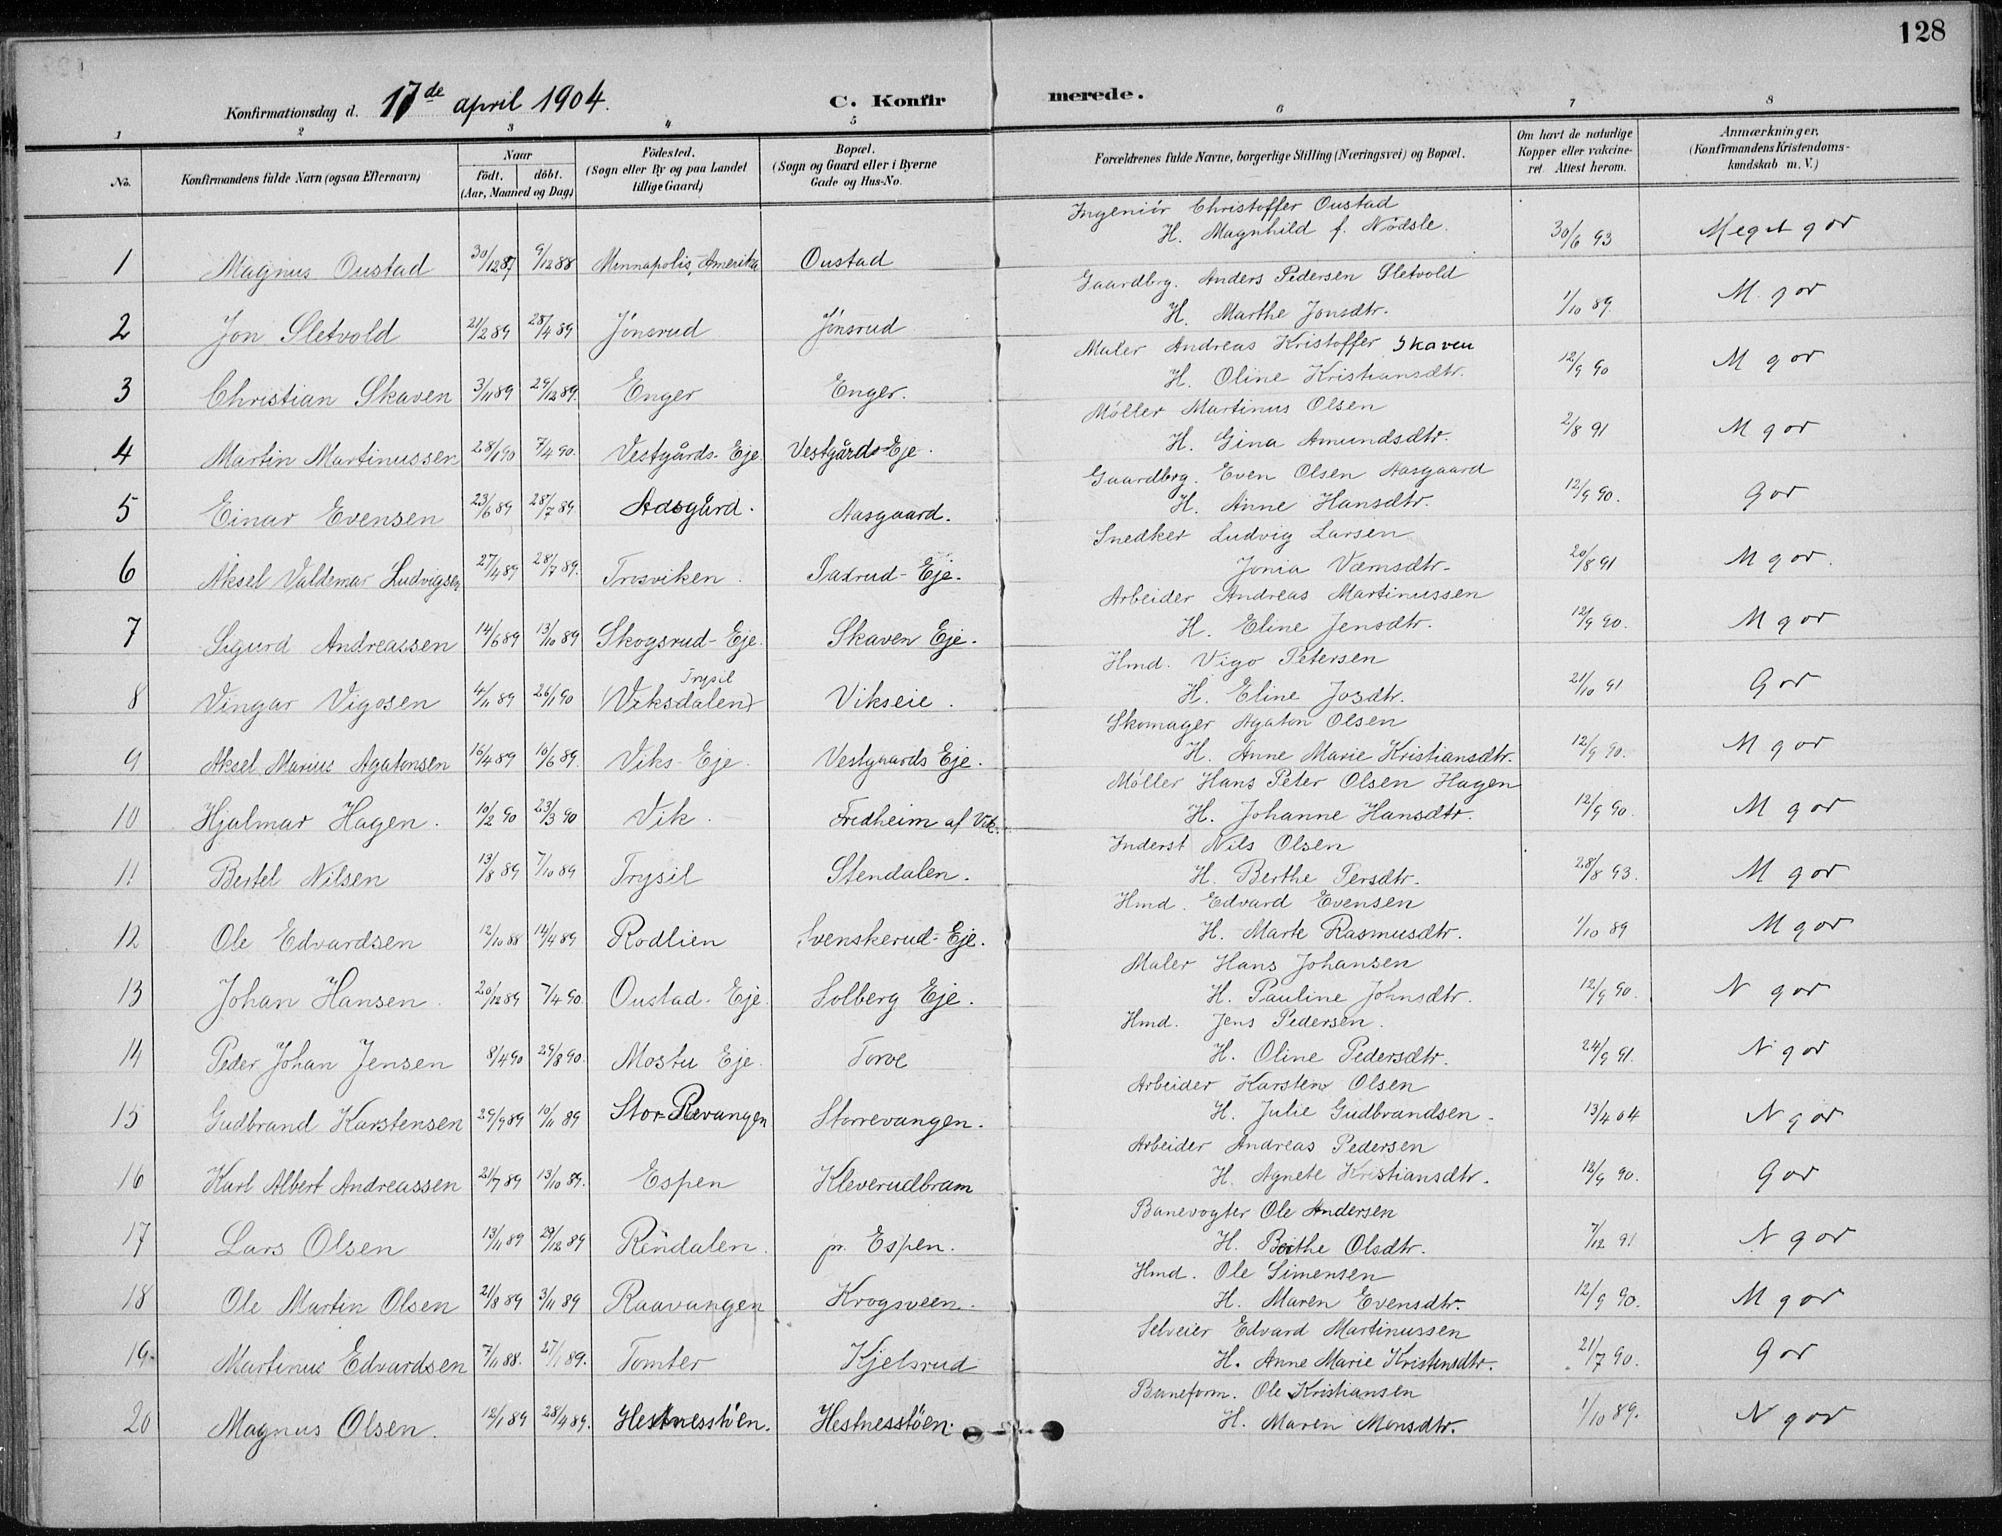 128
Konfirmationsdag d. 17de april 1904. C. Konfirmerede.
1 2 3 4 5 6 7 8
No. Konfirmandens fulde Navn (ogsaa Efternavn) Naar födt. döbt. (Aar, Maaned og Dag) Födested. (Sogn eller By og paa Landet tillige Gaard) Bopæl. (Sogn og Gaard eller i Byerne Gade og Hus-No. Forældrenes fulde Navne, borgerlige Stilling (Næringsvei) og Bopæl. Om havt de naturlige Kopper eller vakcineret Attest herom. Anmærkninger, (Konfirmandens Kristendomskundskab m. V.)
Ingeniör Christoffer Oustad
1 Magnus Oustad 30/12 87 9/12 88 Minnapolis, Amerika Oustad H. Magnhild f. Nödsle. 30/6 93 Meget gor
Gaardbrg. Anders Pedersen Sletvold
2 Jon Sletvold 21/2 89 28/4 89 Jönsrud Jönsrud H. Marthe Jonsdtr. 1/10 89. M. gor
Maler Andreas Kristoffer Skaven
3 Christian Skaven 3/11 89 29/12 89. Enger Enger. H. Oline Kristiansdtr. 12/9 90 M gor
Möller Martinus Olsen
4 Martin Martinussen 28/1 90 7/4 90. Vestgårds-Eje. Vestgårds-Eje. H. Gina Amundsdtr. 2/8 91 M gor
Gaardbrg. Even Olsen Aasgaard
5 Einar Evensen 23/6 89 28/7 89. Aasgård. Aasgaard. H. Anne Hansdtr. 12/9 90. Gor
Snedker Ludvig Larsen
6 Aksel Valdemar Ludvigsen 27/4 89 28/7 89. Trosviken. Saxrud-Eje. Jonia 20/8 91 M gor.
Arbeider Andreas Martinussen
7 Sigurd Andreassen 14/6 89 13/10 89 Skogsrud-Eje. Skaven Eje. H. Eline Jensdtr. 12/9 90. M gor
Hmd. Vigo Petersen
8 Vingar Vigosen 4/11 89 26/1 90 (Viksdalen) Trysil Vikseie. H. Eline Josdtr. 21/10 91 Gor
Skomager Agaton Olsen
9 Aksel Marius Agatonsen 16/4 89 10/6 89. Viks-Eje. Vestgaards Eje. H. Anne Marie Kristiansdtr. 12/9 90. M gor
Möller Hans Peter Olsen Hagen
10 Hjalmar Hagen. 10/2 90 23/3 90 Vik. Fredheim af Vik. H. Johanne Hansdtr. 12/9 90. M gor
Inderst Nils Olsen
11 Bertel Nilsen 13/8 89 7/10 89 Trysil Stendalen. H. Berthe Persdtr. 28/8 93. M gor
Hmd. Edvard Evensen
12 Ole Edvardsen 12/10 88 14/4 89 Rodlien Svenskerud-Eje. H. Marte Rasmusdtr. 1/10 89 M gor
Maler Hans Johansen
13 Johan Hansen. 20/12 89 7/4 90 Oustad-Eje. Solberg Eje. H. Pauline Johnsdtr. 12/9 90. N gor
Hmd. Jens Pedersen.
14 Peder Johan Jensen 8/4 90 29/8 90. Mostu Eje. Torve H. Oline Pedersdtr. 24/9 91. N gor
Arbeider Karsten Olsen
15 Gudbrand Karstensen 29/9 89 10/11 89 Stor-Revangen Storrevangen. H. Julie Gudbrandsen. 13/4 04 N gor
Arbeider Andreas Pedersen
16 Karl Albert Andreassen 21/7 89 13/10 89. Espen Kleverudbram H. Agnete Kristiansdtr. 12/9 90. Gor
Banevogter Ole Andersen
17 Lars Olsen 13/11 89 29/12 89 Rendalen. pr. Espen. H. Berthe Olsdtr. 7/12 91 N gor
Hmd. Ole Simensen
18 Ole Martin Olsen 21/8 89 3/11 89 Raavangen Krogsveen. H. Maren Evensdtr. 12/9 90. M gor
Selveier Edvard Martinussen
19. Martinus Edvardsen 7/11 88. 27/1 89. Tomter Kjelsrud H. Anne Marie Kristensdtr. 21/7 90. Gor
Baneform. Ole Kristiansen
20 Magnus Olsen. 12/1 89 28/4 89. Hestnesstöen. Hestnesstöen. H. Maren Monsdtr. 1/10 89. N gor